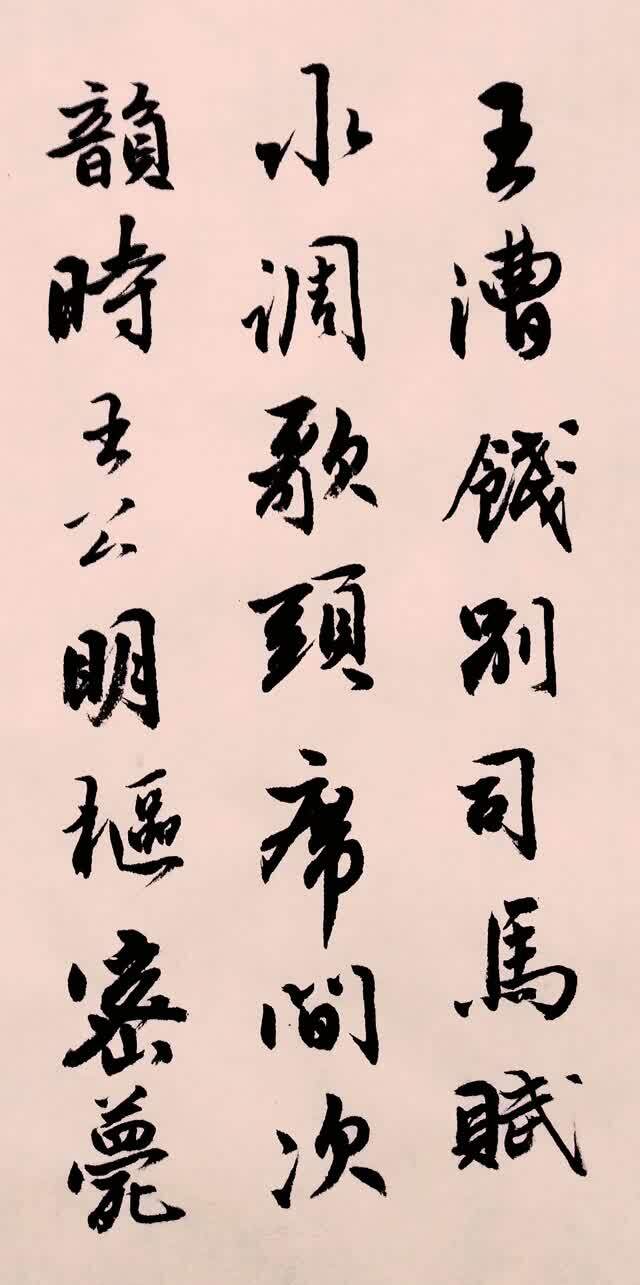 王漕餞别司馬賦
水调歌頭席間次
韻時王公明樞密薨